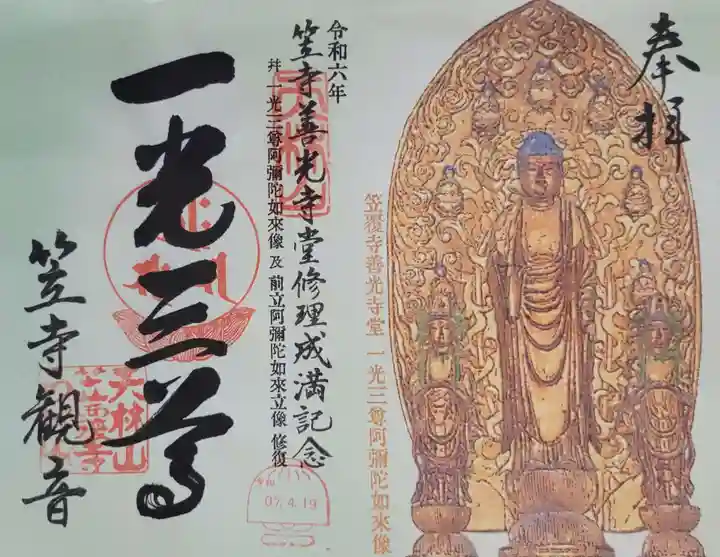 奉拝
笠覆寺善光寺堂 一光三尊阿彌陀如來像
令和六年
笠寺善光寺堂修理成満記念
幷 一光三尊阿彌陀如來像 及 前立阿彌陀如來立像 修復
一光三尊
笠寺観音
天林山
笠覆寺
07.4.19